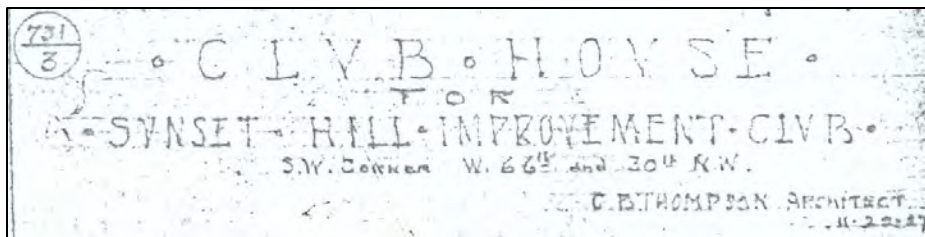 731
3
· CLVB · HOVSE ·
FOR
· SVNSET · HILL · IMPROVEMENT · CLVB ·
S.W. CORNER W. 66th and 30th N.W.
C.B.THOMPSON ARCHITECT
11-22-27